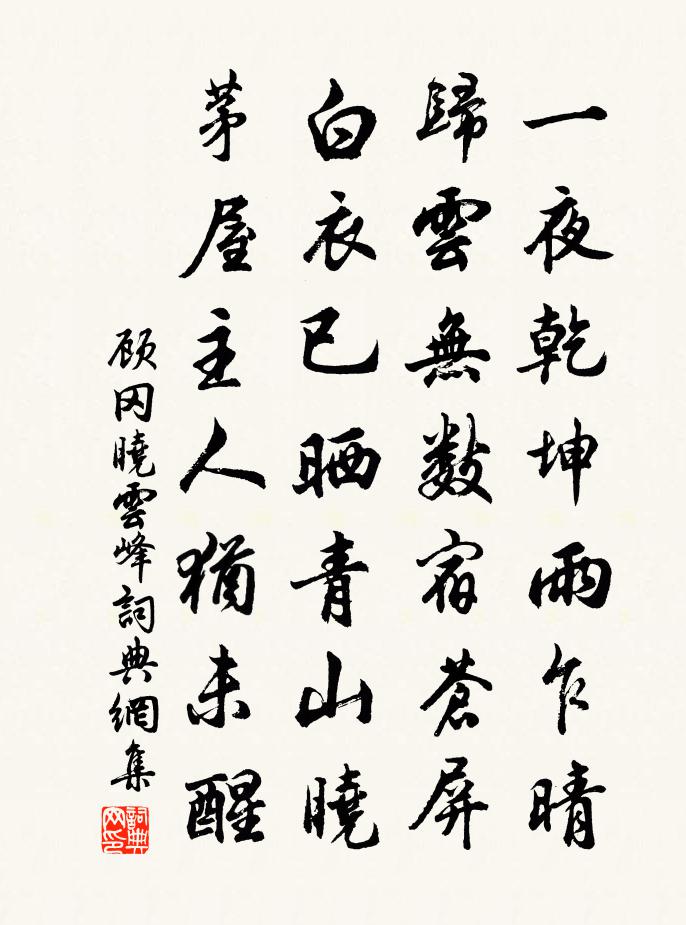 一夜乾坤雨乍晴
歸雲無數宿蒼屏
白衣已晒青山曉
茅屋主人猶未醒
顾冈曉雲峰詞典網集
詞典网印